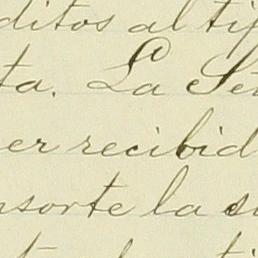 ditos al ti
ta. La Se
er recibid
nsorte la su